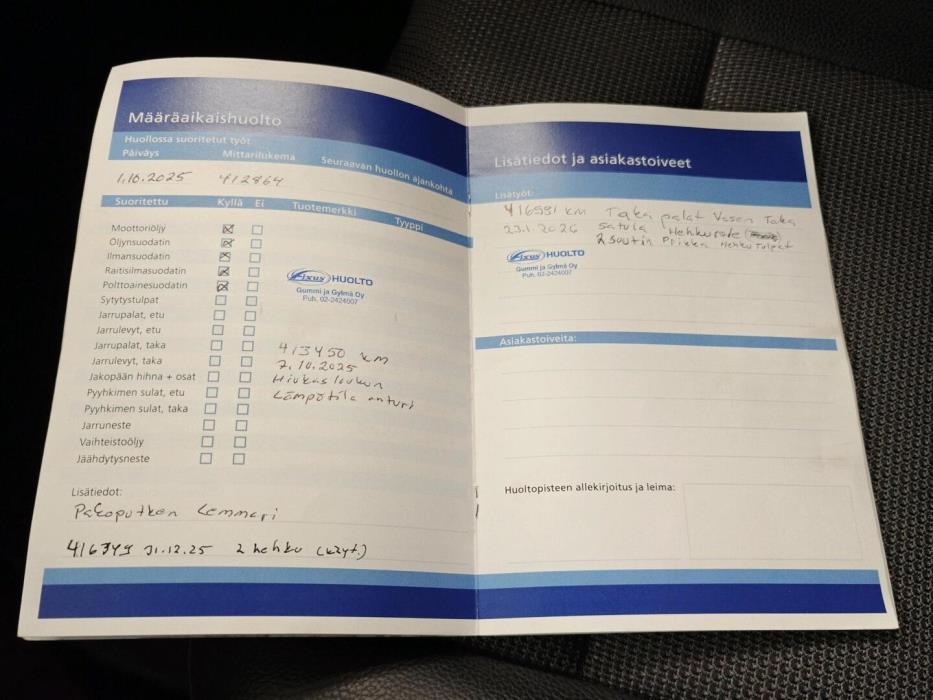 Määräaikaishuolto
Huollossa suoritetut työt
Päiväys Mittarilukema Seuraavan huollon ajankohta
1.10.2025 412864
Suoritettu Kyllä Ei Tuotemerkki Tyyppi
Moottoriöljy
Öljynsuodatin
Ilmansuodatin
Raitisilmasuodatin
Polttoainesuodatin
Sytytystulpat
Jarrupalat, etu
Jarrulevyt, etu
Jarrupalat, taka
Jarrulevyt, taka
Jakopään hihna + osat
Pyyhkimen sulat, etu
Pyyhkimen sulat, taka
Jarruneste
Vaihteistoöljy
Jäähdytysneste
Fixus HUOLTO
Gummi ja Gylmä Oy
Puh. 02-2424007
413450 km
7.10.2025
Hiukasloukun
Lämpötila anturi
Lisätiedot:
Pakoputken Lemmari
416349 31.12.25 2 hehku (käyt.)
Lisätiedot ja asiakastoiveet
Lisätyöt:
416591 km Taka palat Vasen Taka
23.1.2026 satula Hehkurele
2 Suutin Prikka Hehku Tulpat
Fixus HUOLTO
Gummi ja Gylmä Oy
Puh. 02-2424007
Asiakastoiveita:
Huoltopisteen allekirjoitus ja leima: